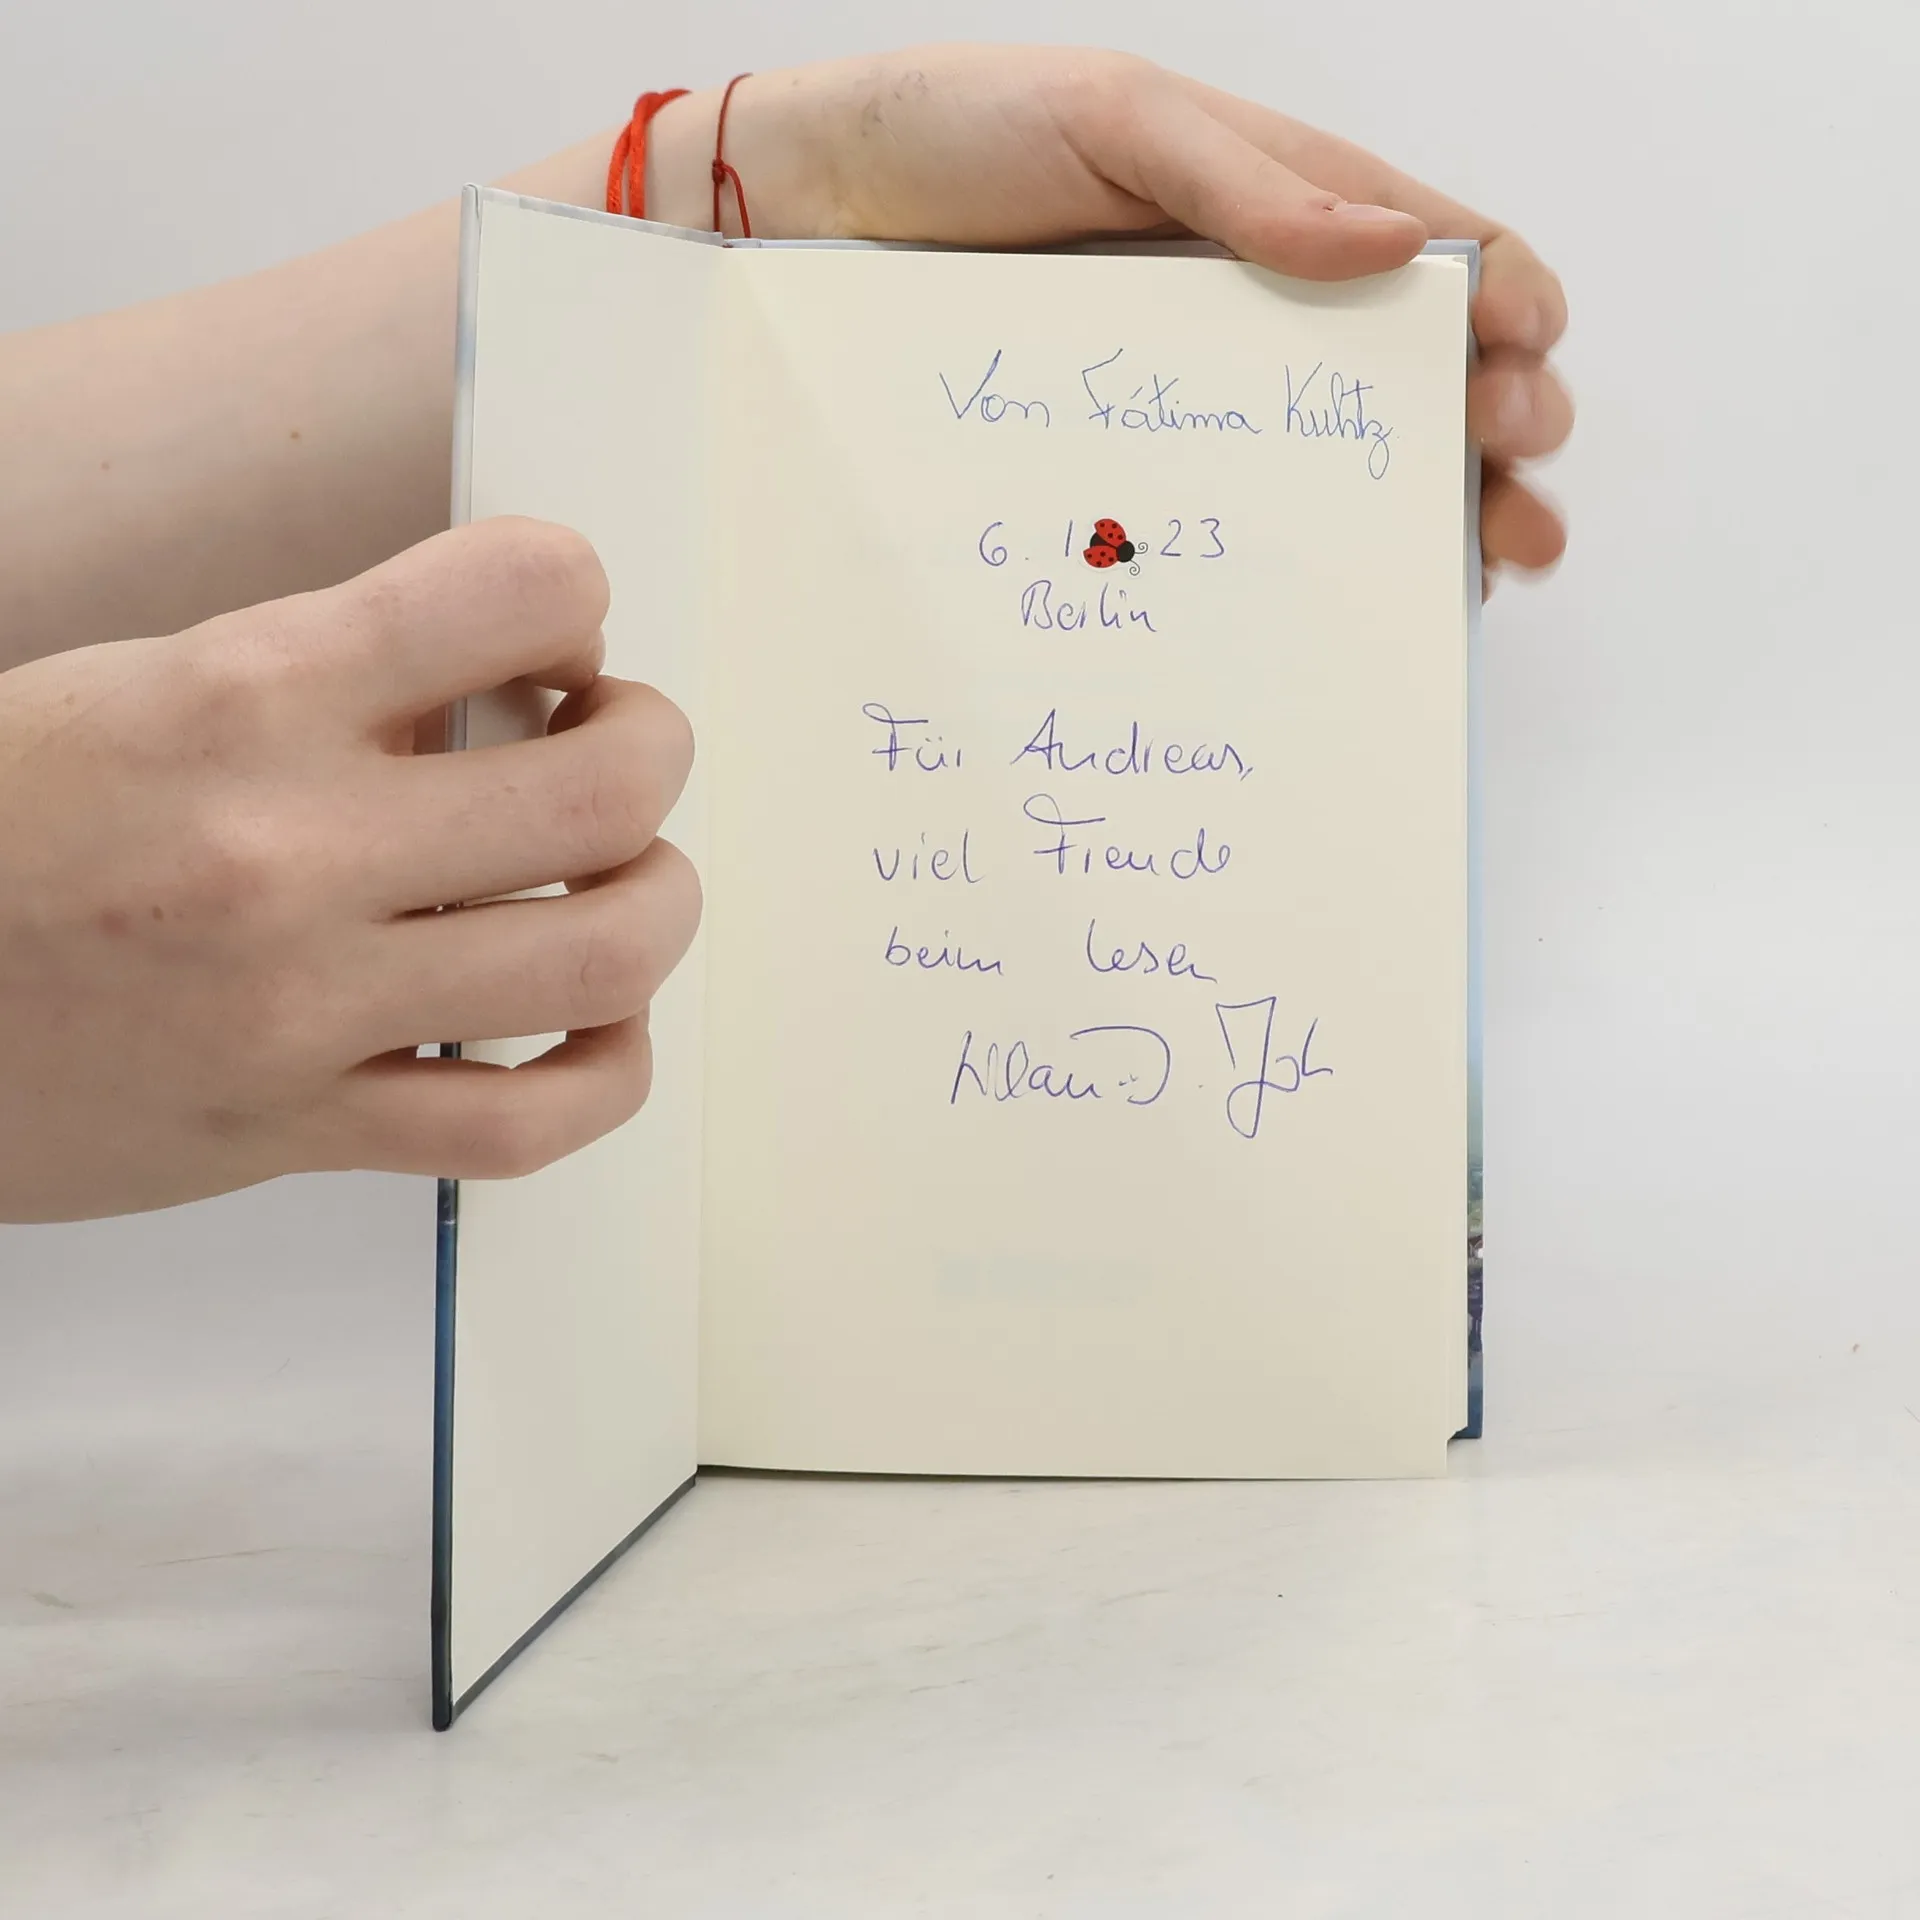 Von Fátima Kuhtz
6. 1 23
Berlin
Für Andreas,
viel Freude
beim lesen